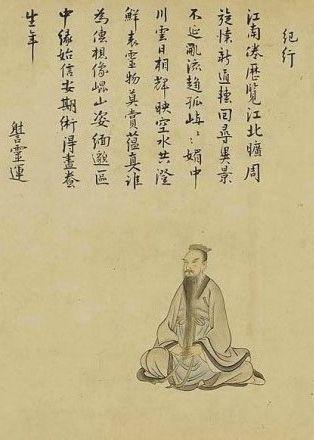 紀行
江南倦歷覽江北曠周
旋懷新道轉回尋異景
不延亂流趨孤嶼〻〻媚中
川雲日相輝映空水共澄
鮮表靈物莫賞蘊真誰
為傳想像崐山姿緬邈區
中緣始信安期術得盡養
生年
謝靈運